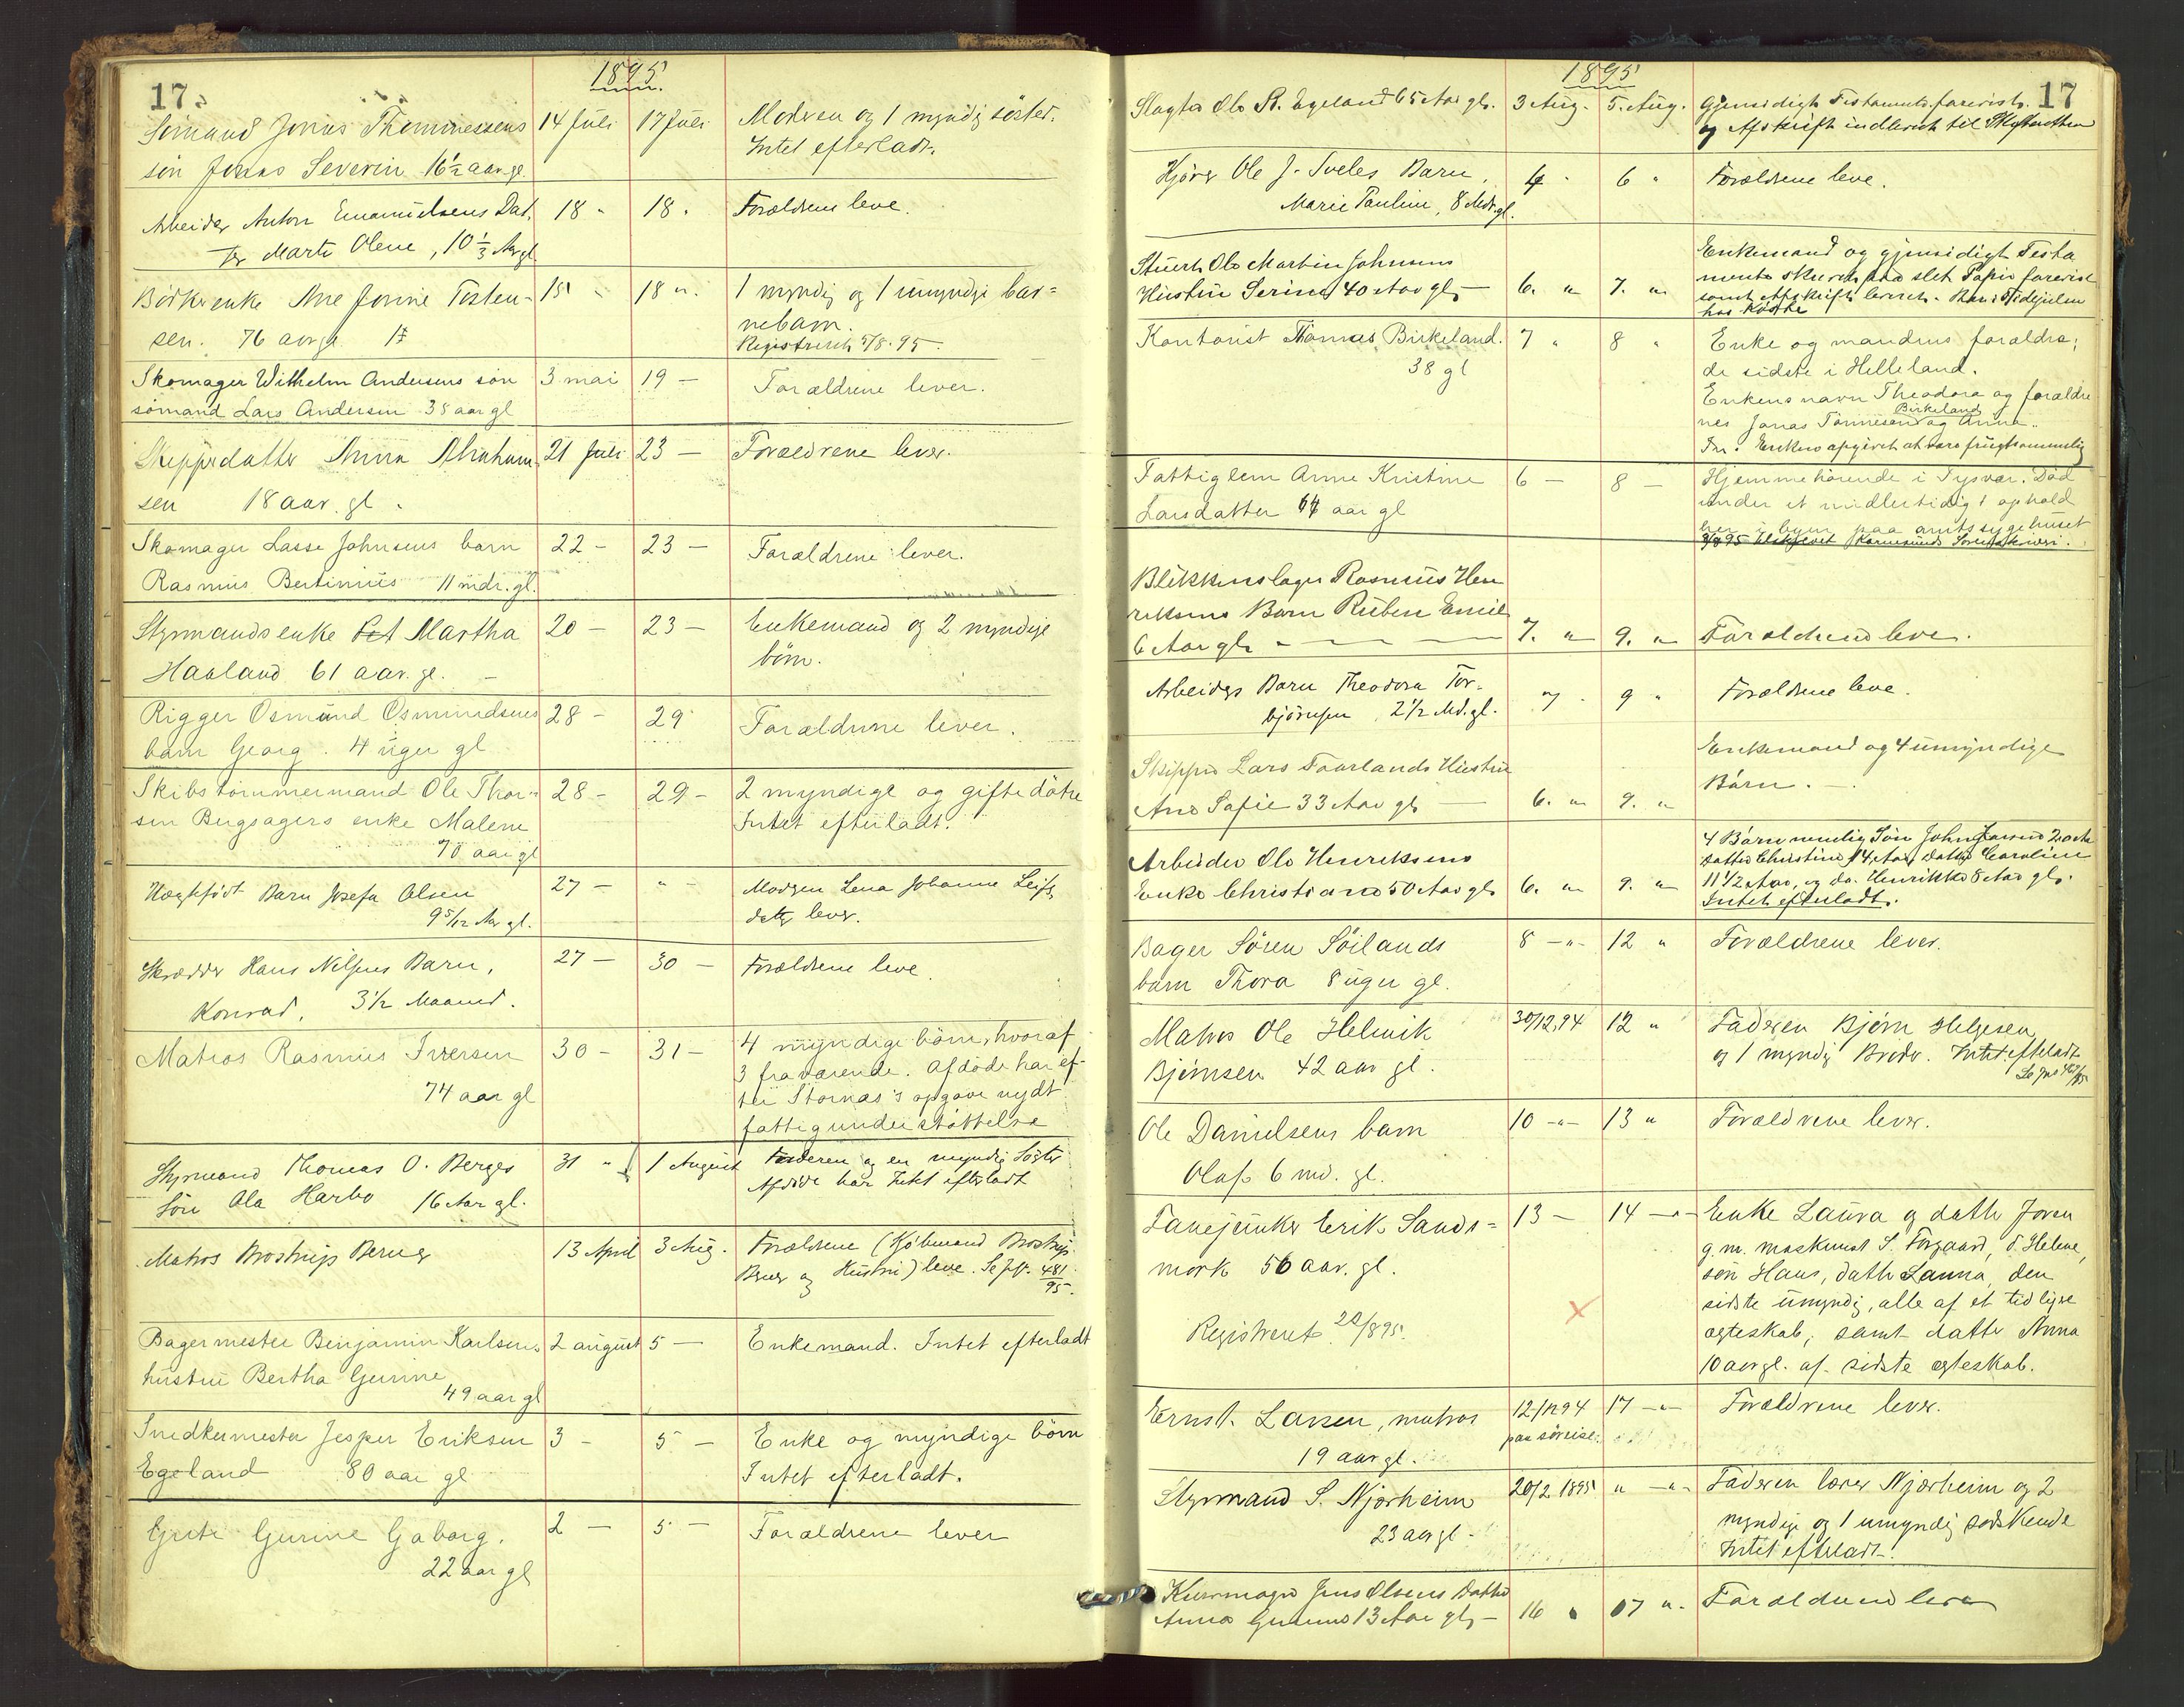 17.
1895
Sömand Jonas Thommessens 14 Juli 17 Juli Moderen og 1 myndig söster.
sön Jonas Severin 16½ aar gl. Intet efterladt.
Arbeider Anton Emanuelsens Dat, 18 " 18 " Forældrene leve.
ter Marta Olene, 10 1/3 Aar gl
Bödkerenke Ane Jonine Tosten- 15 " 18 " 1 myndig og 1 umyndig bar=
sen. 76 aar gl nebarn.
Registreret 5/8.95.
Skomager Wilhelm Andersens sön 3 mai 19 — Forældrene lever.
sömand Lars Andersen 38 aar gl
Skipperdatter Anna Abraham- 21 Juli 23 — Forældrene lever.
sen 18 aar gl.
Skomager Lasse Johnsens barn 22 - 23 — Forældrene lever.
Rasmus Bertinius 11 mdr. gl.
Styrmandsenke Pet Martha 20 — 23 — Enkemand og 2 myndige
Haaland 61 aar. gl. — börn.
Rigger Osmund Osmundsens 28 - 29 Forældrene lever.
barn Georg. 4 uger gl
Skibstömmermand Ole Thor- 28 - 29 - 2 myndige og gifte dötre
sen Bugsagers enke Malene Intet efterladt.
70 aar gl
Uægtefödt Barn Josefa Olsen 27 — " - Moderen Lena Johanne Leifs
9 5/12 Aar gl. datter lever.
Skrædder Hans Nilsens Barn, 27 — 30 — Forældrene leve.
Konrad, 3½ Maaned.
Matros Rasmus Iversen 30 - 31 — 4 myndige börn, hvoraf
74 aar gl 3 fraværende. Afdöde har ef-
ter Stornæs's opgave nydt
fattigunderstöttelse
Styrmand Thomas O. Berges 31 " 1 August Faderen og en myndig Söster
Sön Ola Harbo 16 Aar gl. Afdöde har Intet efterladt
Matros Brostrup Berner 13 April 3 Aug. Forældrene (Kjöbmand Brostrup
Berner og Hustru) leve. Se Jr. 481/95.
Bagermester Benjamin Karlsens 2 august 5 — Enkemand. Intet efterladt
hustru Bertha Gurine
49 aar gl
Snedkermester Jesper Eriksen 3 - 5 — Enke og myndige börn
Egeland 80 aar gl Intet efterladt.
Gurine Gaborg. 2 — 5 — Forældrene lever
22 aar gl
17
1895
Slagter Ole R. Egeland 65 Aar gl. 3 Aug. 5. Aug. Gjensidigt Testamente forevist
og Afskrift indleveret til Skifteretten
Ole J. Tveles Barn, 4 " 6 " Forældrene leve.
Marie Pauline, 8 Mdr. gl.
Stuert Ole Martin Johnsens Enkemand og gjensidigt Testa
Hustru Serine 40 Aar gl — 6. " 7. " mente slet Papir forevist
samt Afskrift leveret.
Kontorist Thomas Birkeland. 7 " 8 " Enke og mandens forældre;
38 gl de sidste i Helleland.
Enkens navn Theodora og forældre
Birkeland
nes Jonas Tönnesen og Anna.
Enken opgivet at være frugtsommelig
Fattiglem Anne Kristine 6 — 8 — Hjemmehörende i Tysvær. Död
Larsdatter 64 aar gl under et midlertidigt ophold
her i byen paa amtssygehuset
Karmsunds Sorenskriveri.
Blikkenslager Rasmus Hen
riksens Barn Ruben Emil
6 Aar gl — 7. " 9. " Forældrene lever.
Arbeiders Barn Theodora Tor- 7 " 9 " Forældrene leve.
björnsen, 2½ Md. gl.
Skipper Lars Faarlands Hustru Enkemand og 4 umyndige
Ane Sofie 33 Aar gl — 6. " 9. " Börn. —
4 Börn nemlig Sön John 20 Aar
Arbeider Ole Henriksens datter Christine 14 Aar, datter Caroline
Enke Christiane 50 Aar gl 6. " 9. " 11½ Aar, og do. Henrikke 8 Aar gl.
Intet efterladt.
Bager Sören Söilands 8 -"- 12 " Forældrene lever.
barn Thora 8 uger gl.
Matros Ole Helmik 30/12.94 12 " Faderen Björn Helgesen
Björnsen 42 aar gl. og 1 myndig Broder. Intet efterladt
Ole Danielsens barn 10 -"- 13 " Forældrene lever.
Olaf 6 md. gl.
Fanejunker Erik Sands= 13 — 14 -"- Enke Laura og datter Joren
mork 56 aar. gl. g. m. maskinist S. Torgaard, d. Helene,
sön Haus, datter Launa, den
Registreret 20/8 95. X sidste umyndig, alle af et tidligere
ægteskab; samt datter Anna
10 aar gl. af sidste ægteskab.
Ernst Larsen, matros 12/12 94 17 -"- Forældrene lever.
19 aar gl. paa söreise.
Styrmand S. Njærheim 20/2 1895 " -"- Faderen lærer Njærheim og 2
23 aar gl. myndige og 1 umyndig sødskende
Intet efterladt.
Kurvmager Jens Olsens Datter
Anna Gurine 13 Aar gl — 16 " 17 " Forældrene lever